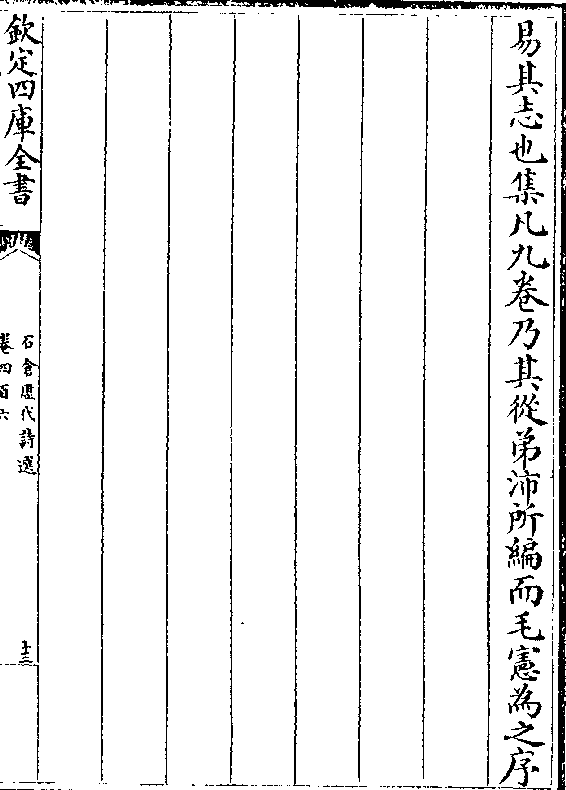 易其志也集凡九卷乃其從弟沛所編而毛憲為之序
欽定四庫全書
石倉歷代詩選
卷四百六
十三